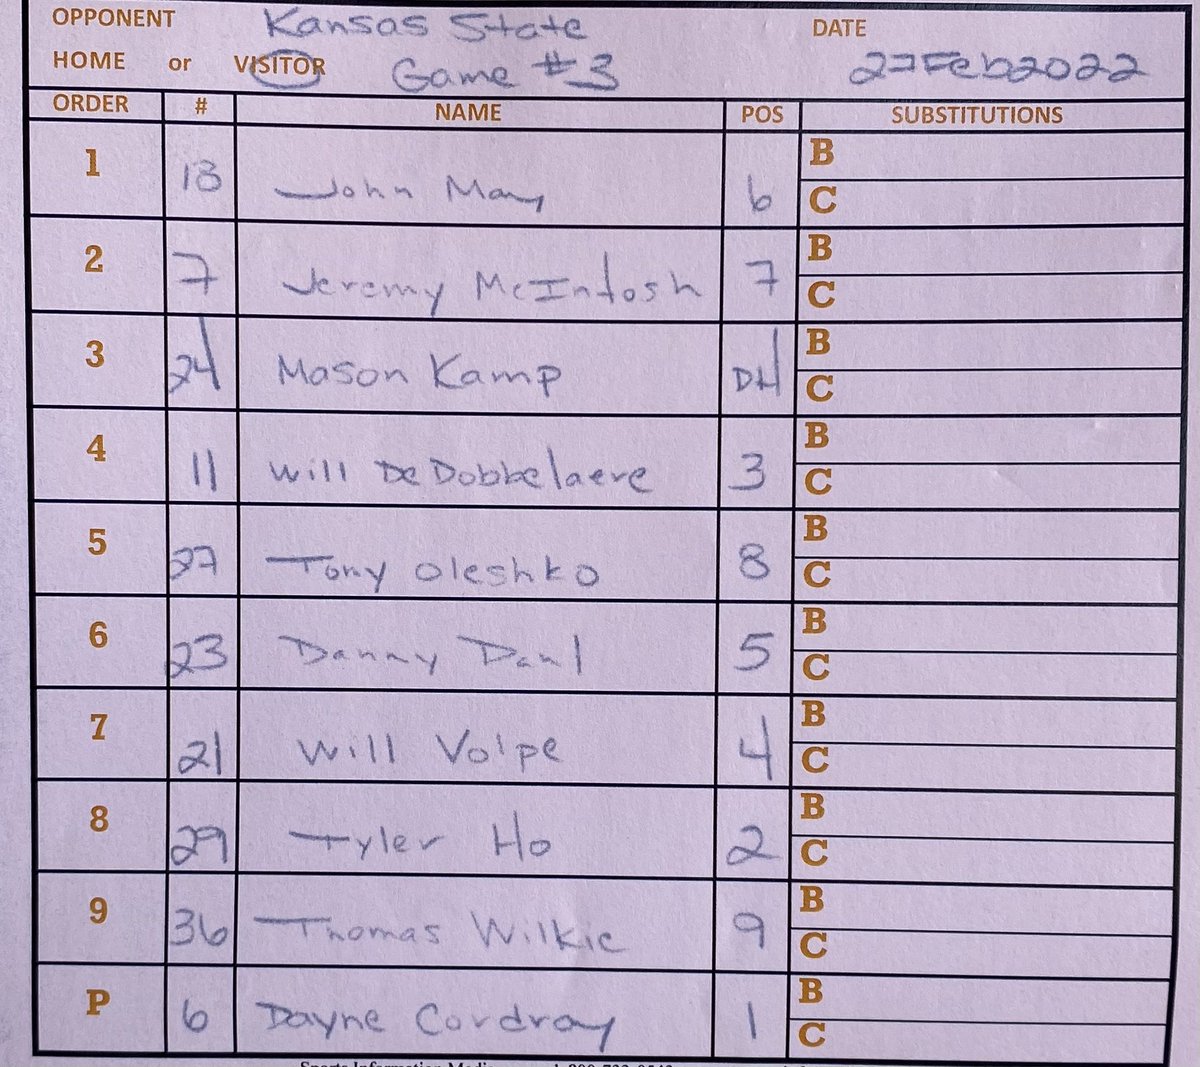 OPPONENT Kansas State DATE
HOME or VISITOR Game #3 27Feb2022
ORDER # NAME POS SUBSTITUTIONS
1 13 John May 6 B
C
2 7 Jeremy McIntosh 7 B
C
3 24 Mason Kamp DH B
C
4 11 Will DeDobbelaere 3 B
C
5 27 Tony Oleshko 8 B
C
6 23 Danny Daul 5 B
C
7 21 Will Volpe 4 B
C
8 29 Tyler Ho 2 B
C
9 36 Thomas Wilkie 9 B
C
P 6 Dayne Cordray 1 B
C